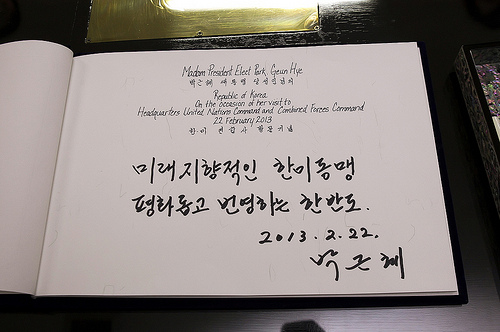 Madam President Elect Park, Geun Hye
박근혜 대통령 당선인귀하
Republic of Korea
On the occasion of her visit to
Headquarters United Nations Command and Combined Forces Command
22 February 2013
한·미 연합사 방문기념
미래지향적인 한미동맹
평화롭고 번영하는 한반도.
2013. 2. 22.
박근혜